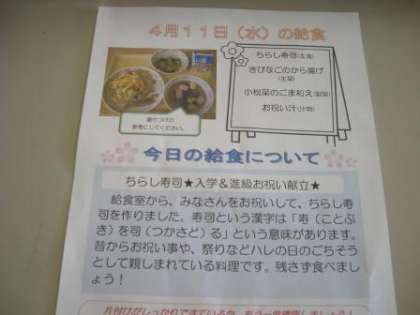 4月11日（水）の給食
ちらし寿司(主食)
きびなごのから揚げ
(主菜)
小松菜のごま和え(副菜)
お祝い汁(汁物)
盛りつけの
参考にしてください。
今日の給食について
ちらし寿司★入学＆進級お祝い献立★
給食室から、みなさんをお祝いして、ちらし寿
司を作りました。寿司という漢字は「寿（ことぶ
き）を司（つかさど）る」という意味があります。
昔からお祝い事や、祭りなどハレの日のごちそう
として親しまれている料理です。残さず食べまし
ょう！